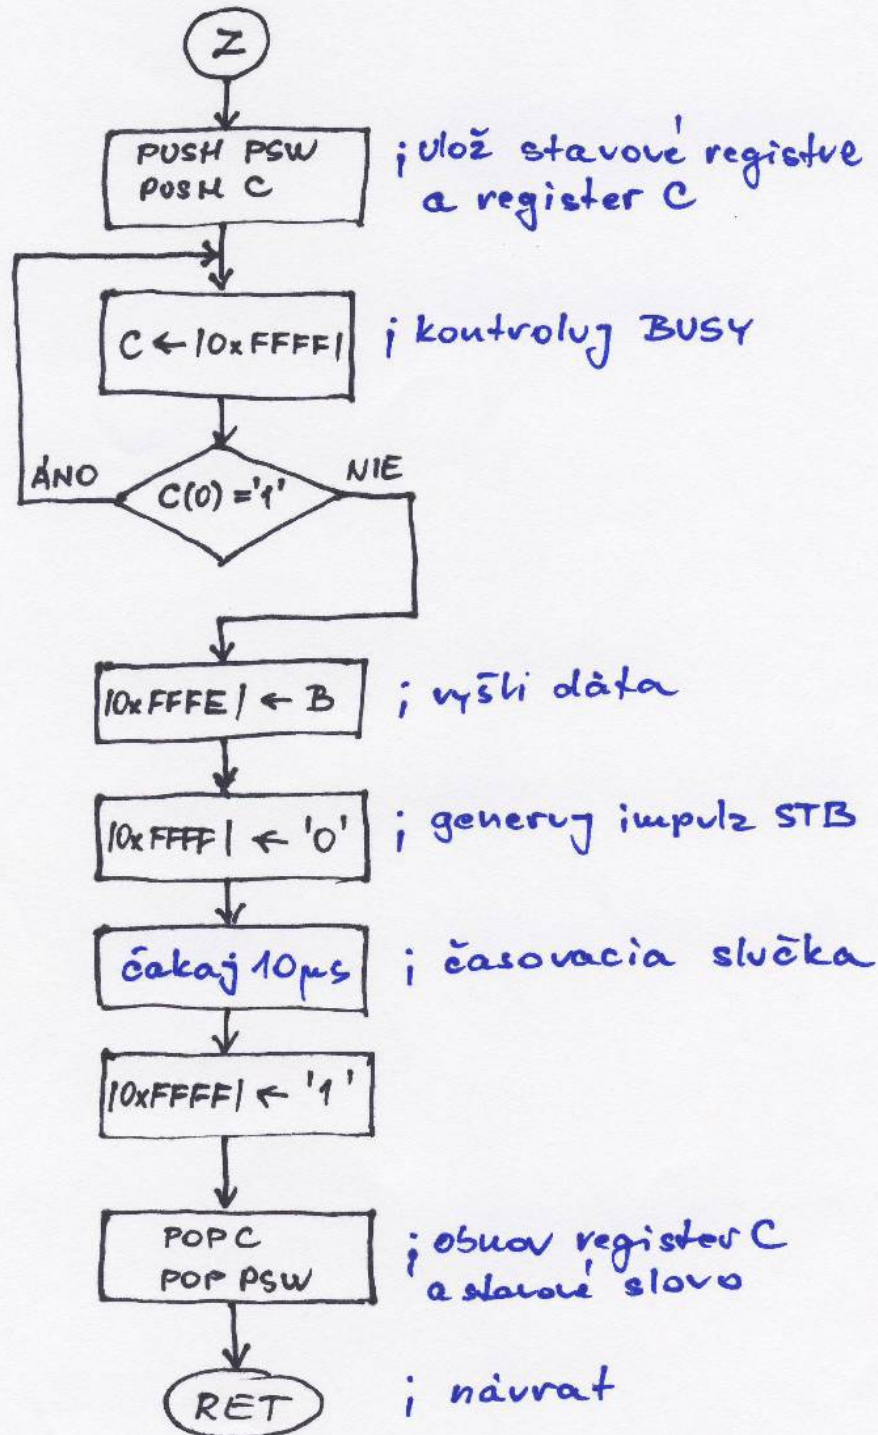 Z
PUSH PSW
PUSH C
; ulož stavové registre
a register C
C ← |0xFFFF|
; kontroluj BUSY
ÁNO
C(0) = '1'
NIE
|0xFFFE| ← B
; vyšli dáta
|0xFFFF| ← '0'
; generuj impulz STB
čakaj 10µs
; časovacia slučka
|0xFFFF| ← '1'
POP C
POP PSW
; obnov register C
a stavové slovo
RET
; návrat